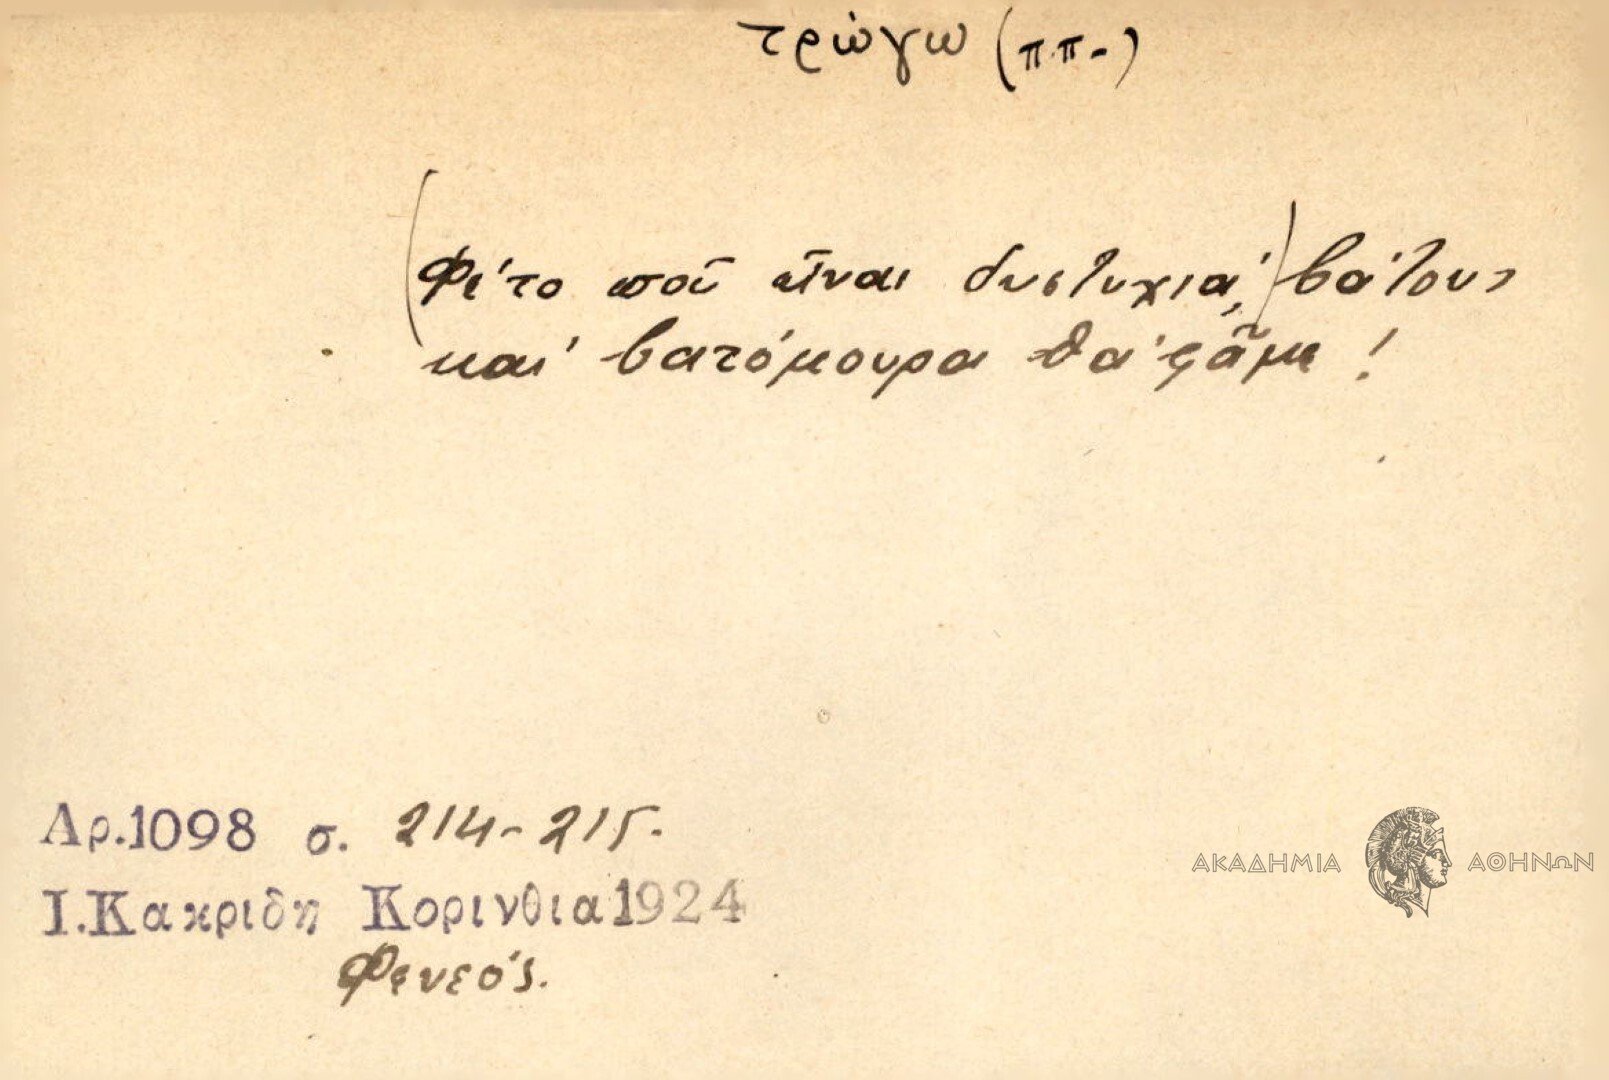 τρώγω (π.π-)
(Φέτο ποῦ εἶναι δυστυχιά,) βάτους
καὶ βατόμουρα θὰ φᾶμε!
Αρ.1098 σ. 214-215.
Ι.Κακριδη Κορινθια 1924
Φενεός.
ΑΚΑΔΗΜΙΑ ΑΘΗΝΩΝ